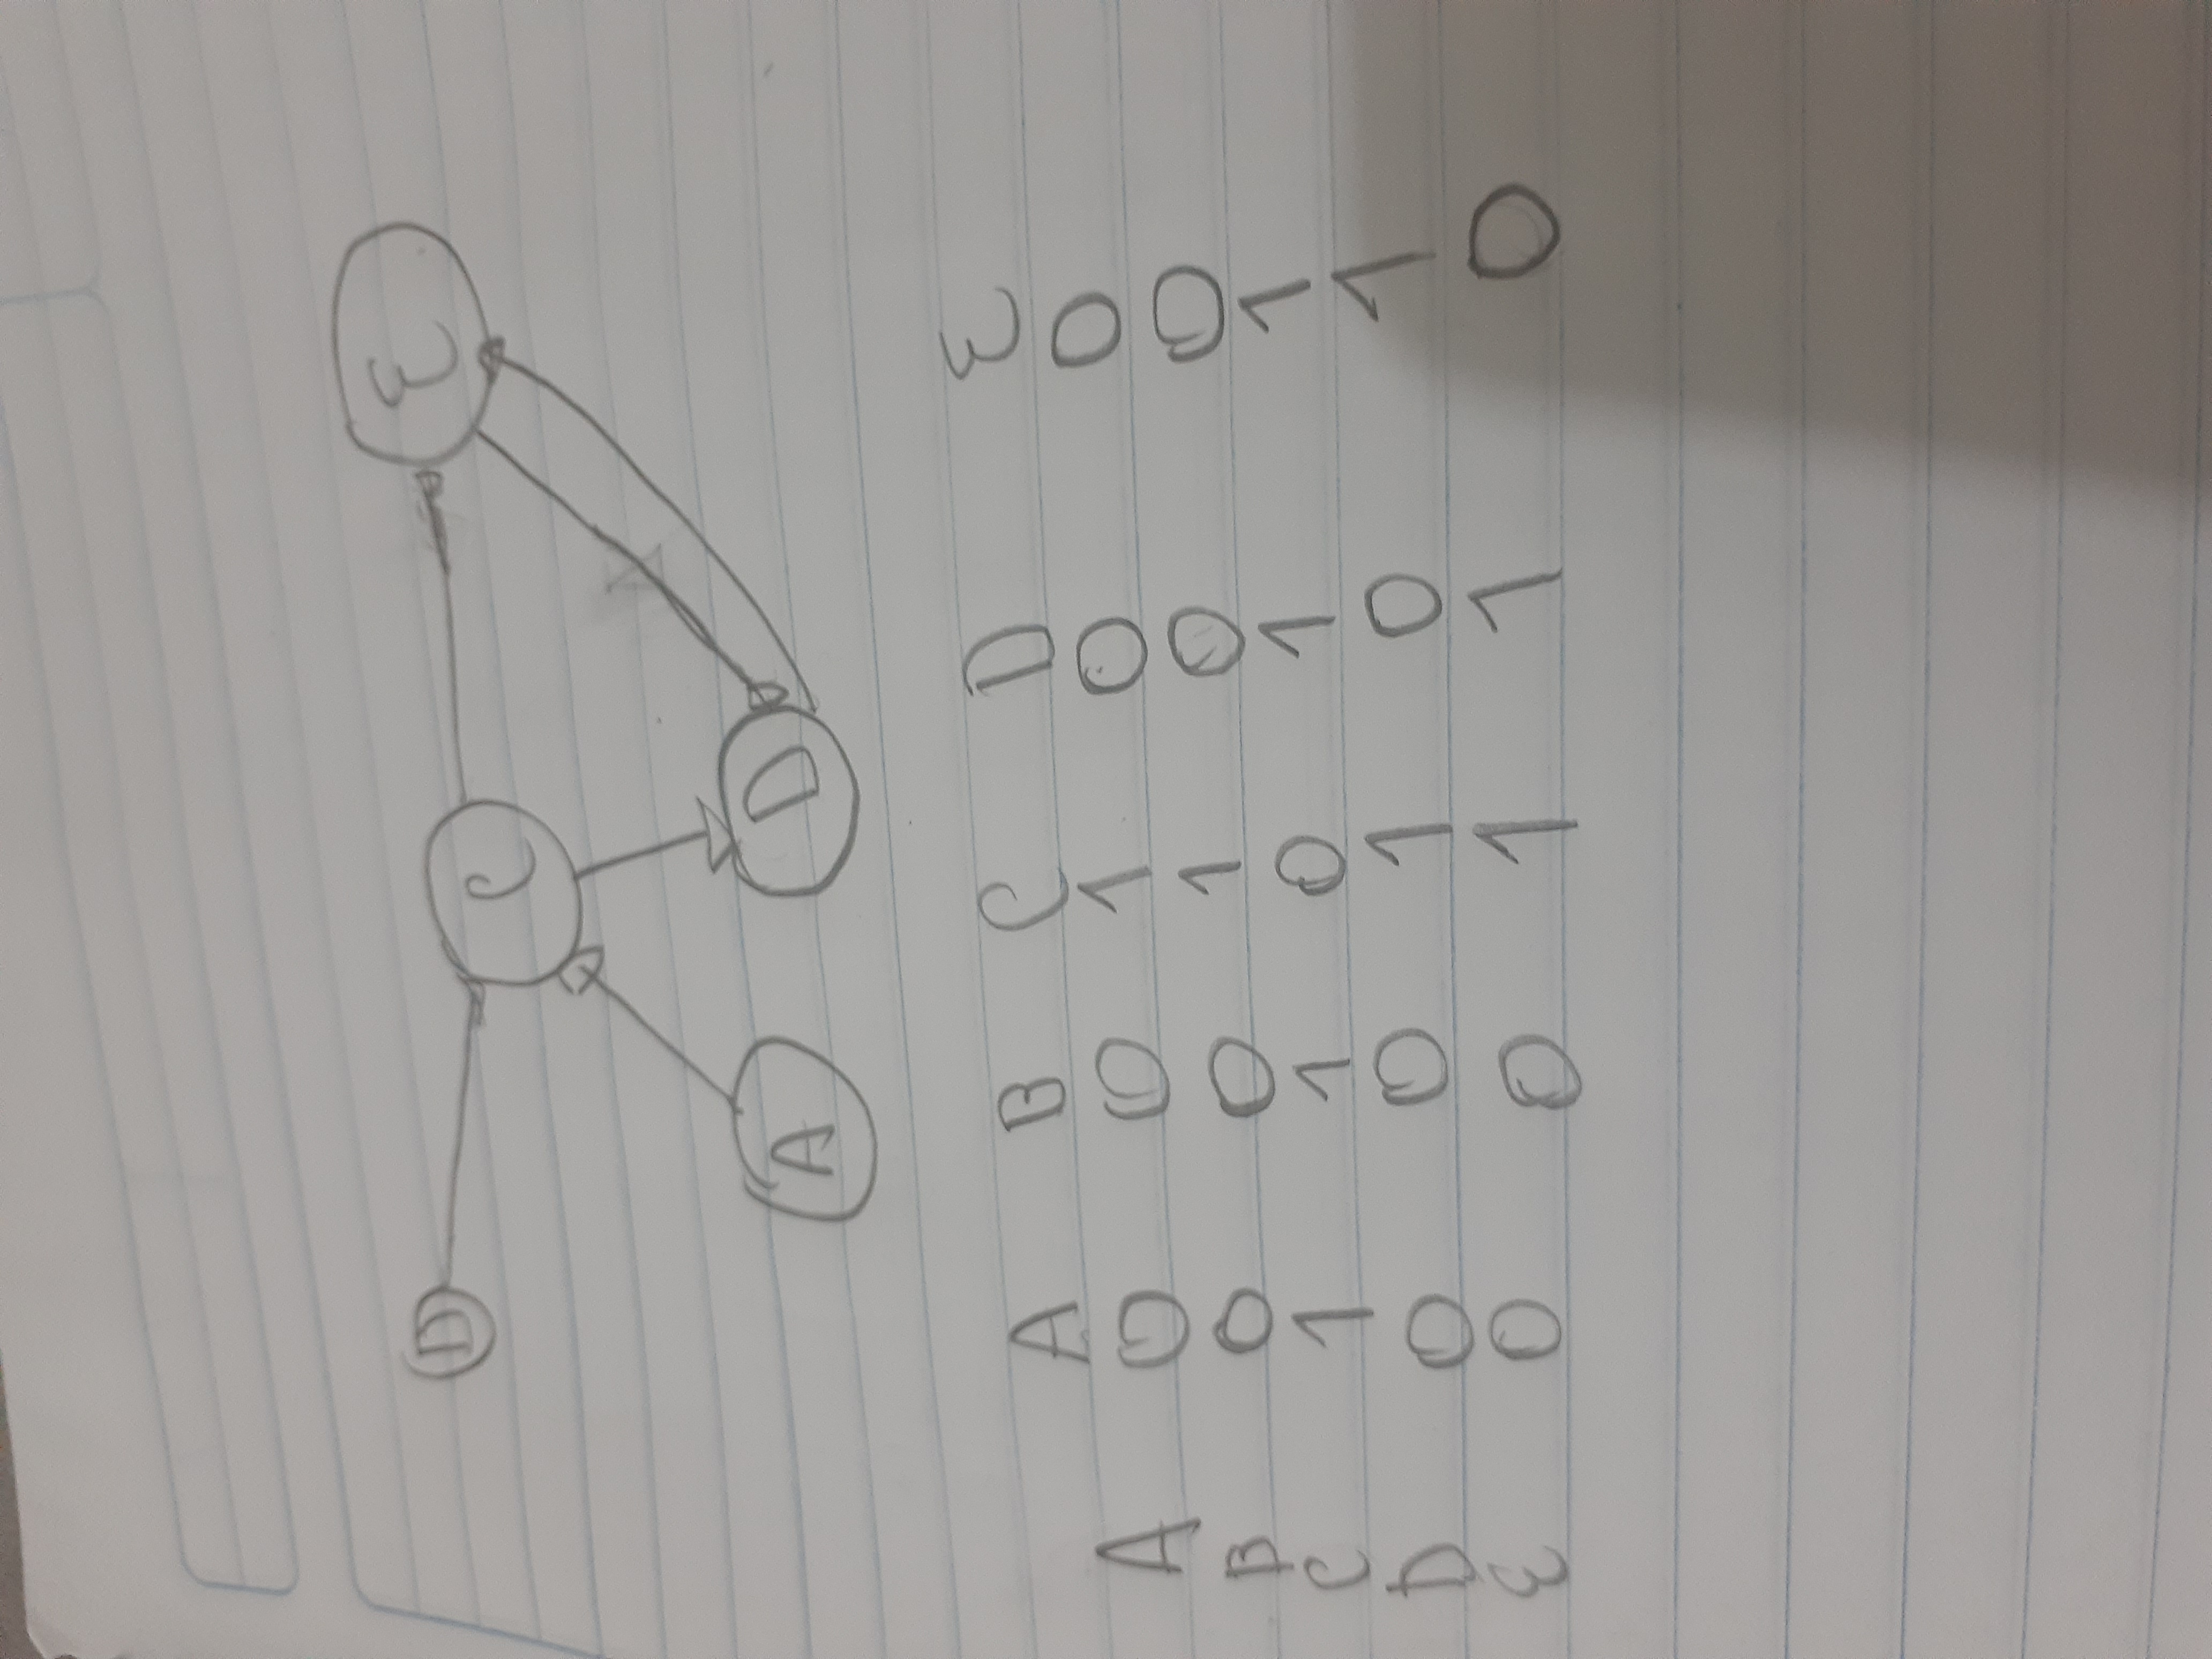 D C E
A D
A B C D E
A 0 0 1 0 0
B 0 0 1 0 0
C 1 1 0 1 1
D 0 0 1 0 1
E 0 0 1 1 0